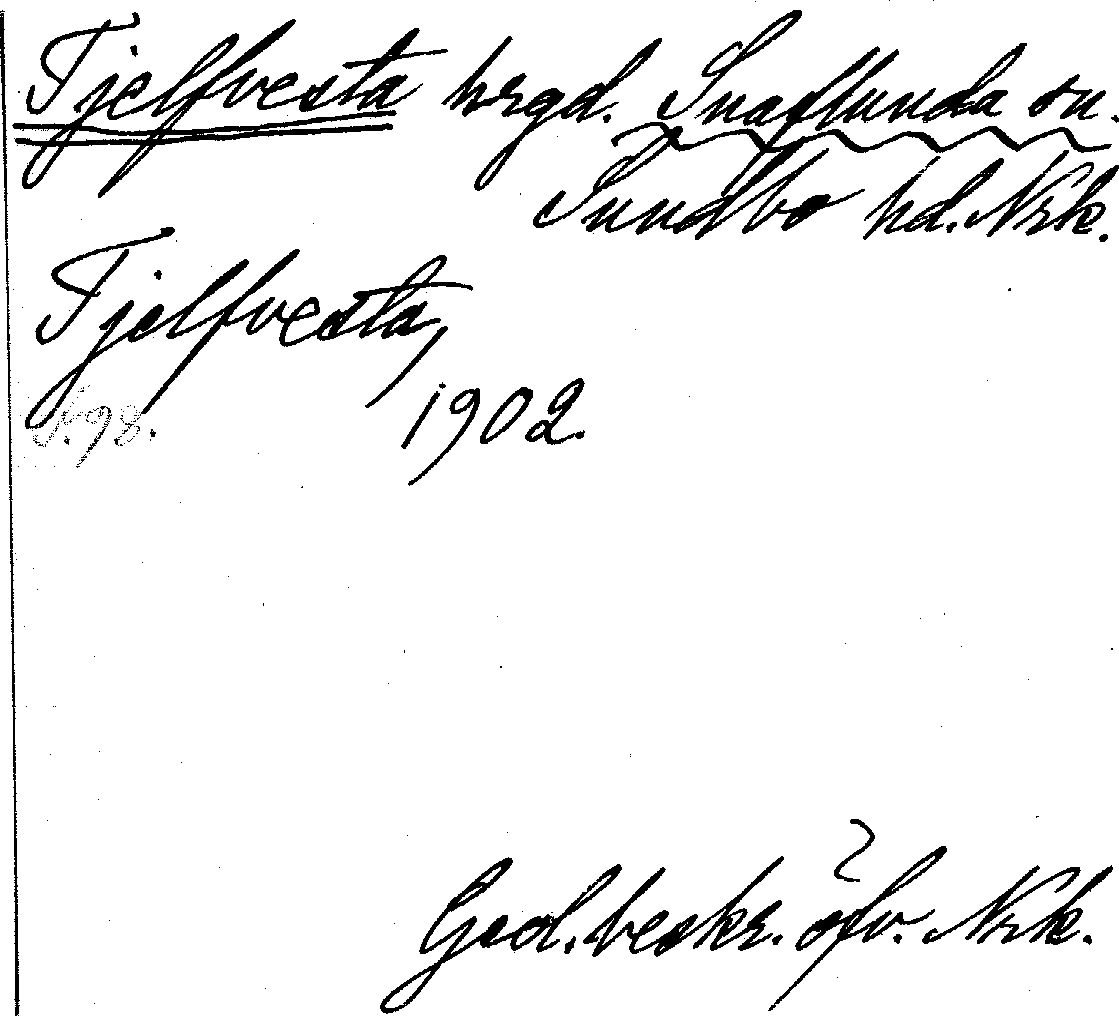 Tjelfvesta hrgd. Snaflunda sn.
Sundbo hd. Nrk.
Tjelfvesta,
S. 98.
1902.
God. beskr. öfv. Nrk.